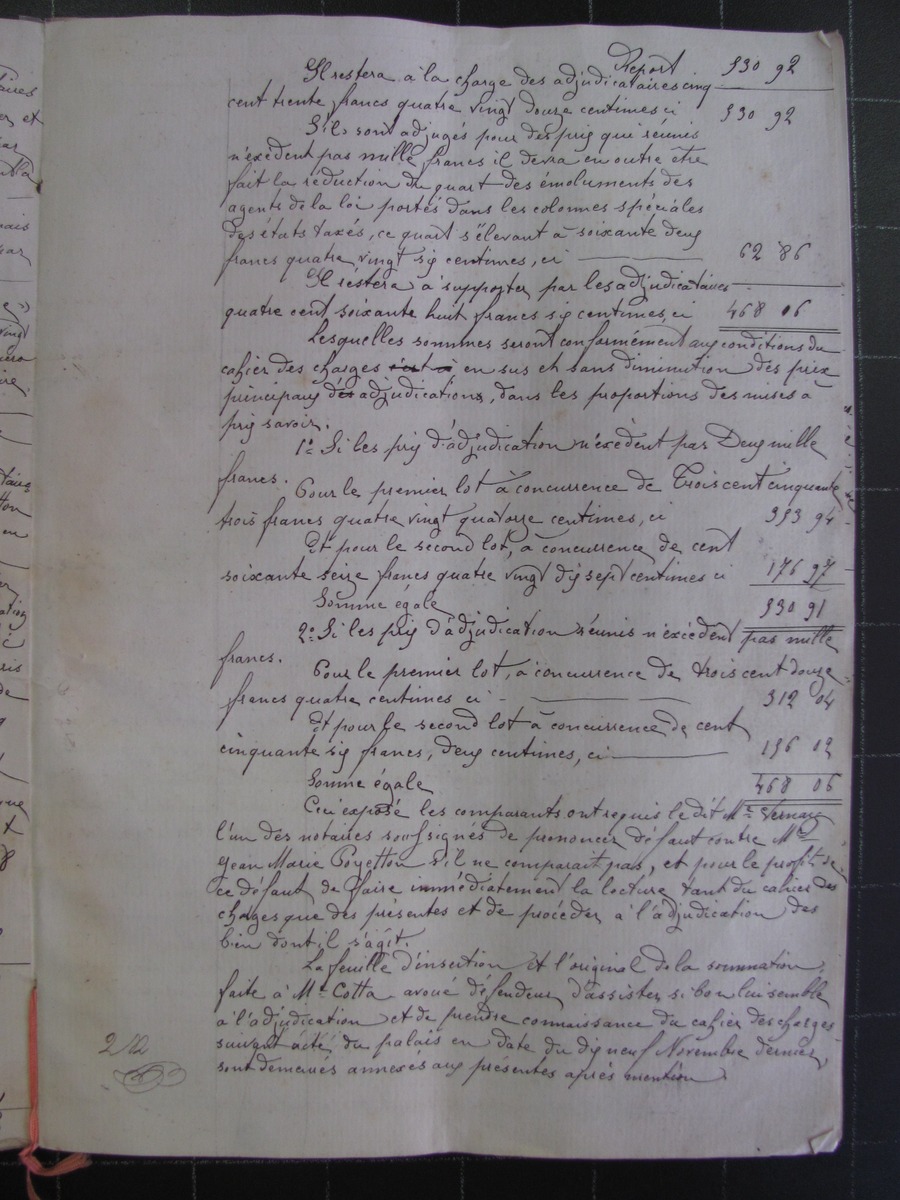 Report 530 92
Il restera à la charge des adjudicataires cinq
cent trente francs quatre vingt douze centimes ci 530 92
S'ils sont adjugés pour des prix que réunis
n'exèdent pas mille francs il devra en outre être
fait la réduction du quart des émoluments des
agents de la loi portés dans les colonnes spéciales
des états taxés, ce quart s'élevant à soixante deux
francs quatre vingt six centimes, ci 62 86
Il restera à supporter par les adjudicataires
quatre cent soixante huit francs six centimes, ci 468 06
Lesquelles sommes seront conformément aux conditions du
cahier des charges en sus et sans diminution des prix
principaux des adjudications, dans les proportions des mises à
prix savoir.
1° Si les prix d'adjudication n'exèdent pas Deux mille
francs.
Pour le premier lot à concurrence de Trois cent cinquante
trois francs quatre vingt quatorze centimes, ci 353 94
Et pour le second lot, à concurrence de cent
soixante seize francs quatre vingt dix sept centimes ci 176 97
Somme égale 530 91
2° Si les prix d'adjudication réunis n'excèdent pas mille
francs.
Pour le premier lot, à concurrence de trois cent douze
francs quatre centimes ci 312 04
Et pour le second lot à concurrence de cent
cinquante six francs, deux centimes, ci 156 02
Somme égale 468 06
Ceci exposé les comparants ont requis le dit Me
l'un des notaires soussignés de prononcer défaut contre Mr
Jean Marie Poyetton s'il ne comparait pas, et pour le profit de
ce défaut de faire immédiatement la lecture tant du cahier des
charges que des présentes et de procéder à l'adjudication des
bien dont il s'agit.
La feuille d'insertion et l'original de la sommation
faite à Me Cotta avoué défendeur d'assister si bon lui semble
à l'adjudication et de prendre connaissance du cahier des charges
suivant acte du palais en date du dix neuf Novembre dernier,
sont demeurés annexés aux présentes après mention.
212